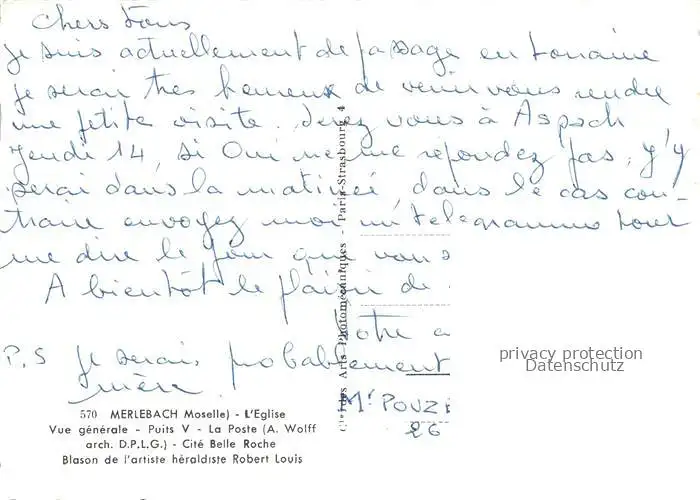 Chers tous
je suis actuellement de passage en Lorraine
je serai très heureux de venir vous rendre
une petite visite. Serez vous à Aspach
Jeudi 14, si Oui ne me répondez pas, j'y
serai dans la matinée, dans le cas con-
traire envoyez moi un télégramme pour
me dire le jour que vous s
A bientôt le plaisir de
Votre a
P.S je serais probablement
mère.
Mr POUZ
26
Cie des Arts Photomécaniques - Paris-Strasbourg 4
privacy protection
Datenschutz
570 MERLEBACH Moselle) - L'Eglise
Vue générale - Puits V - La Poste (A. Wolff
arch. D.P.L.G.) - Cité Belle Roche
Blason de l'artiste héraldiste Robert Louis